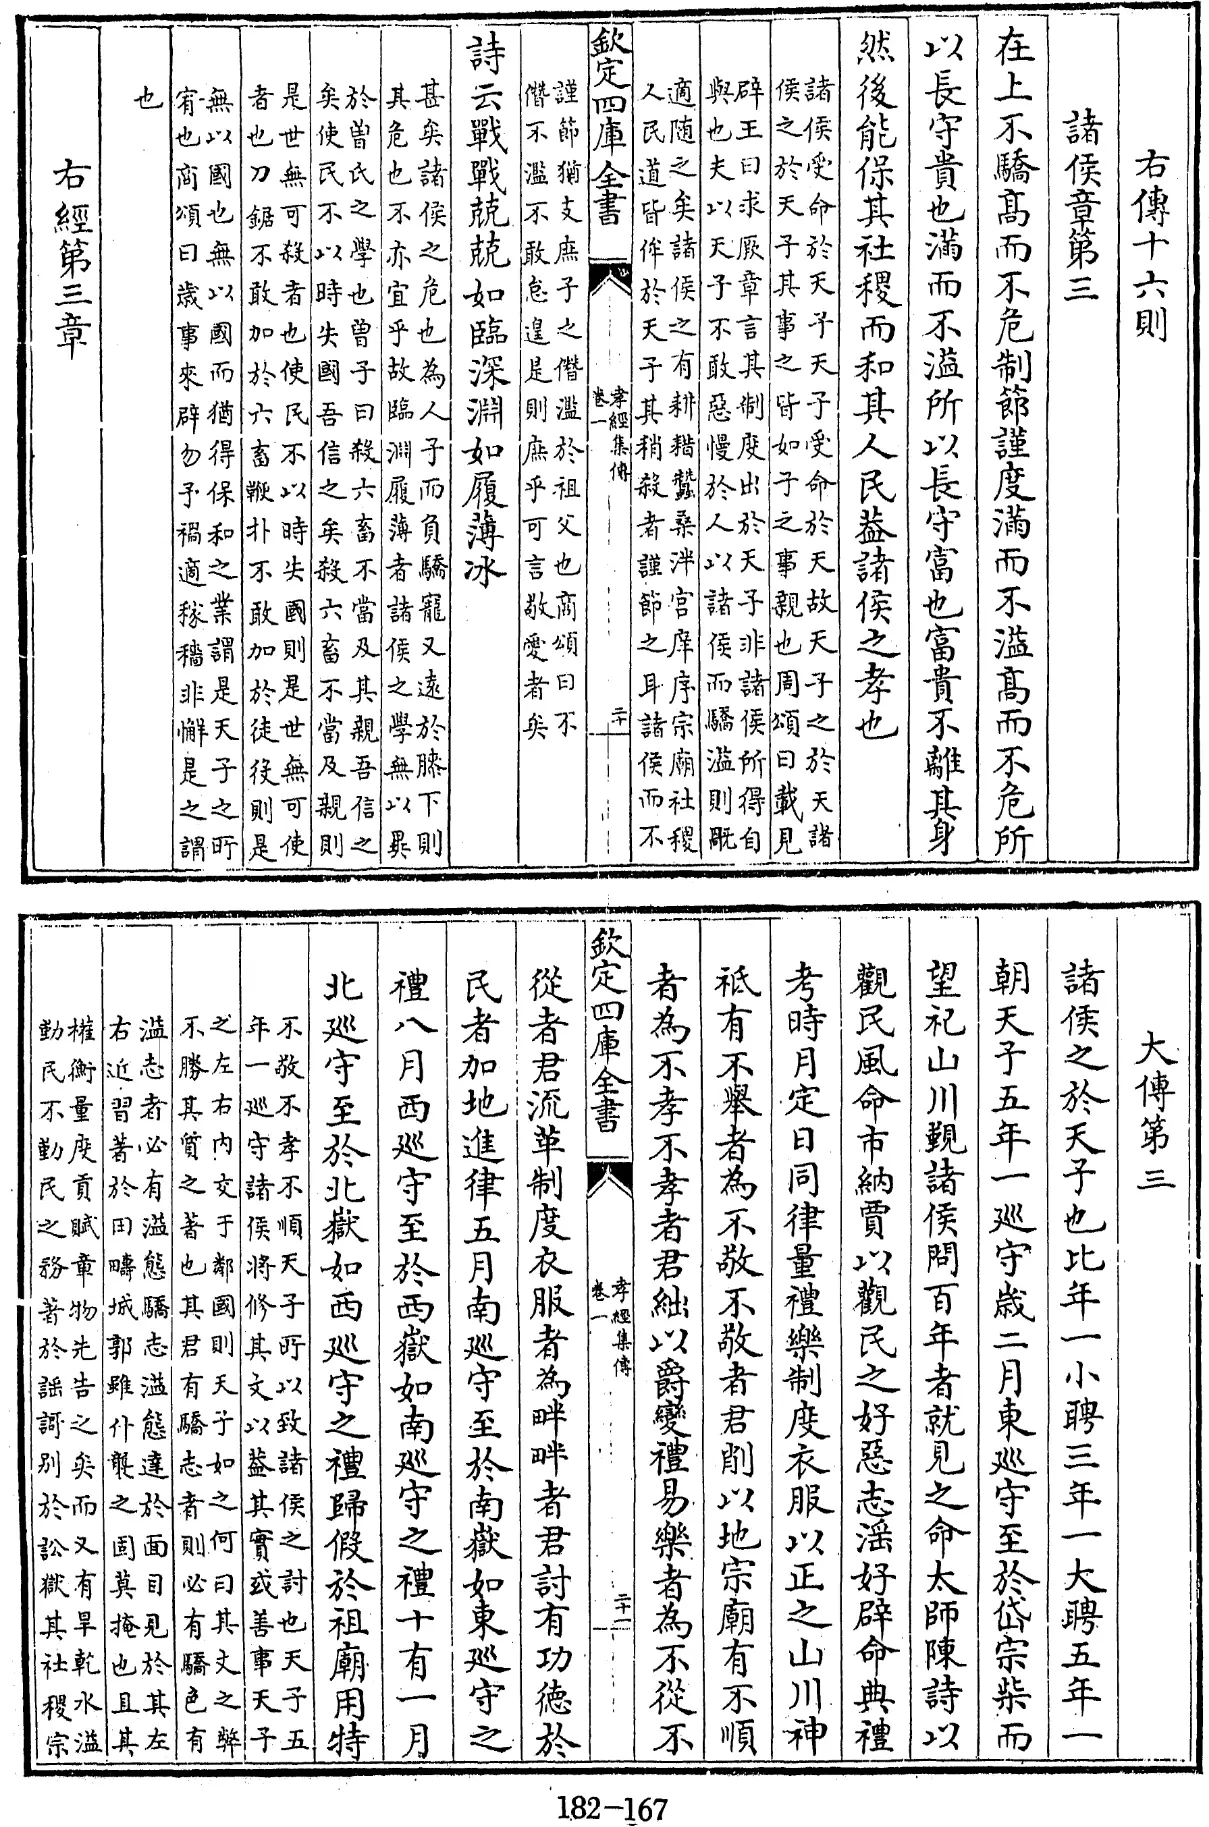 右傳十六則
諸侯章第三
在上不驕髙而不危制節謹度滿而不溢髙而不危所
以長守貴也滿而不溢所以長守富也富貴不離其身
然後能保其社稷而和其人民蓋諸侯之孝也
諸侯受命於天子天子受命於天故天子之於天諸
侯之於天子其事之皆如子之事親也周頌曰載見
辟王曰求厥章言其制度出於天子非諸侯所得自
與也夫以天子不敢惡慢於人以諸侯而驕溢則既
適隨之矣諸侯之有耕耤蠶桑泮宫庠序宗廟社稷
人民道皆侔於天子其稍殺者謹節之耳諸侯而不
欽定四庫全書
孝經集傳
卷一
二十
謹節猶支庶子之僭濫於祖父也商頌曰不
僭不濫不敢怠遑是則庶乎可言敬愛者矣
詩云戰戰兢兢如臨深淵如履薄冰
甚矣諸侯之危也為人子而負驕寵又遠於膝下則
其危也不亦宜乎故臨淵履薄者諸侯之學無以異
於曽氏之學也曽子曰殺六畜不當及其親吾信之
矣使民不以時失國吾信之矣殺六畜不當及親則
是世無可殺者也使民不以時失國則是世無可使
者也刀鋸不敢加於六畜鞭扑不敢加於徒役則是
無以國也無以國而猶得保和之業謂是天子之所
宥也商頌曰歳事來辟勿予禍適稼穡非懈是之謂
也
右經第三章
大傳第三
諸侯之於天子也比年一小聘三年一大聘五年一
朝天子五年一廵守歳二月東廵守至於岱宗柴而
望祀山川覲諸侯問百年者就見之命太師陳詩以
觀民風命市納賈以觀民之好惡志淫好辟命典禮
考時月定日同律量禮樂制度衣服以正之山川神
祇有不舉者為不敬不敬者君削以地宗廟有不順
者為不孝不孝者君絀以爵變禮易樂者為不從不
欽定四庫全書
孝經集傳
卷一
二十一
從者君流革制度衣服者為畔畔者君討有功德於
民者加地進律五月南廵守至於南嶽如東廵守之
禮八月西廵守至於西嶽如南廵守之禮十有一月
北廵守至於北嶽如西廵守之禮歸假於祖廟用特
不敬不孝不順天子所以致諸侯之討也天子五
年一廵守諸侯將修其文以蓋其實或善事天子
之左右内交于鄰國則天子如之何曰其文之弊
不勝其質之著也其君有驕志者則必有驕色有
溢志者必有溢態驕志溢態達於面目見於其左
右近習著於田疇城郭雖什襲之固莫掩也且其
權衡量度貢賦章物先告之矣而又有旱乾水溢
勤民不勤民之務著於謡謌别於訟獄其社稷宗
182-167